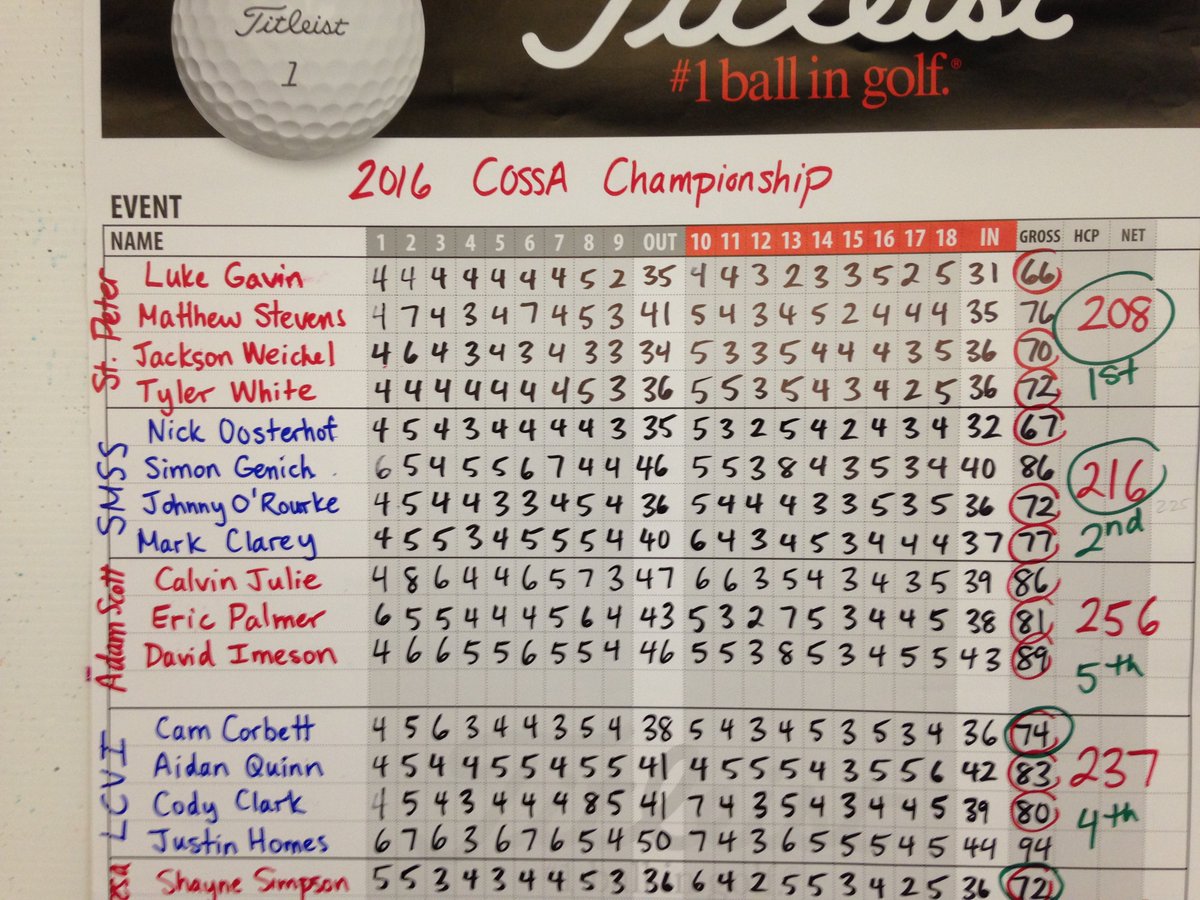 Titleist
1
Titleist
#1 ball in golf.®
2016 COSSA Championship
EVENT
NAME 1 2 3 4 5 6 7 8 9 OUT 10 11 12 13 14 15 16 17 18 IN GROSS HCP NET
St. Peter
Luke Gavin 4 4 4 4 4 4 4 5 2 35 4 4 3 2 3 3 5 2 5 31 66
Matthew Stevens 4 7 4 3 4 7 4 5 3 41 5 4 3 4 5 2 4 4 4 35 76 208
Jackson Weichel 4 6 4 3 4 3 4 3 3 34 5 3 3 5 4 4 4 3 5 36 70 1st
Tyler White 4 4 4 4 4 4 4 5 3 36 5 5 3 5 4 3 4 2 5 36 72
SMSS
Nick Oosterhof 4 5 4 3 4 4 4 4 3 35 5 3 2 5 4 2 4 3 4 32 67
Simon Genich 6 5 4 5 5 6 7 4 4 46 5 5 3 8 4 3 5 3 4 40 86 216
Johnny O'Rourke 4 5 4 4 3 3 4 5 4 36 5 4 4 4 3 3 5 3 5 36 72 225
Mark Clarey 4 5 5 3 4 5 5 5 4 40 6 4 3 4 5 3 4 4 4 37 77 2nd
Adam Scott
Calvin Julie 4 8 6 4 4 6 5 7 3 47 6 6 3 5 4 3 4 3 5 39 86
Eric Palmer 6 5 5 4 4 4 5 6 4 43 5 3 2 7 5 3 4 4 5 38 81 256
David Imeson 4 6 6 5 5 6 5 5 4 46 5 5 3 8 5 3 4 5 5 43 89 5th
LCVI
Cam Corbett 4 5 6 3 4 4 3 5 4 38 5 4 3 4 5 3 5 3 4 36 74
Aidan Quinn 4 5 4 4 5 5 4 5 5 41 4 5 5 5 4 3 5 5 6 42 83 237
Cody Clark 4 5 4 3 4 4 4 8 5 41 7 4 3 5 4 3 4 4 5 39 80 4th
Justin Homes 6 7 6 3 6 7 6 5 4 50 7 4 3 6 5 5 5 4 5 44 94
Shayne Simpson 5 5 3 4 3 4 4 5 3 36 6 4 2 5 5 3 4 2 5 36 72